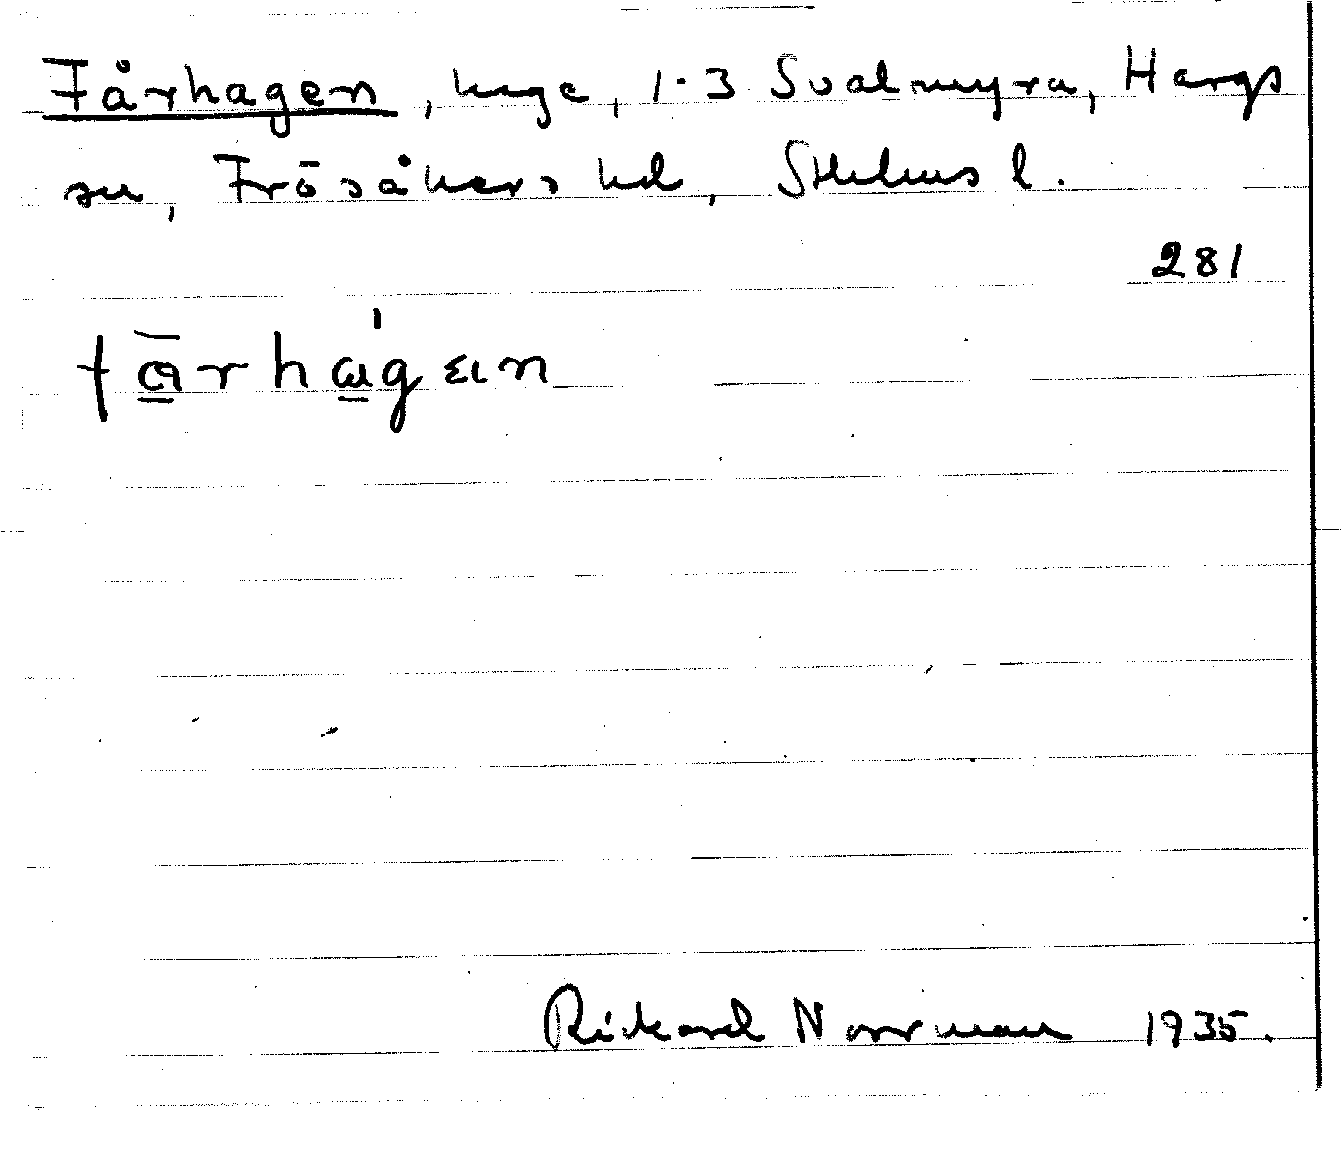 Fårhagen, hage, 1-3 Svalmyra, Hargs
sn, Frösåkers hd, Sthlms l.
281
Rickard Norrman 1935.